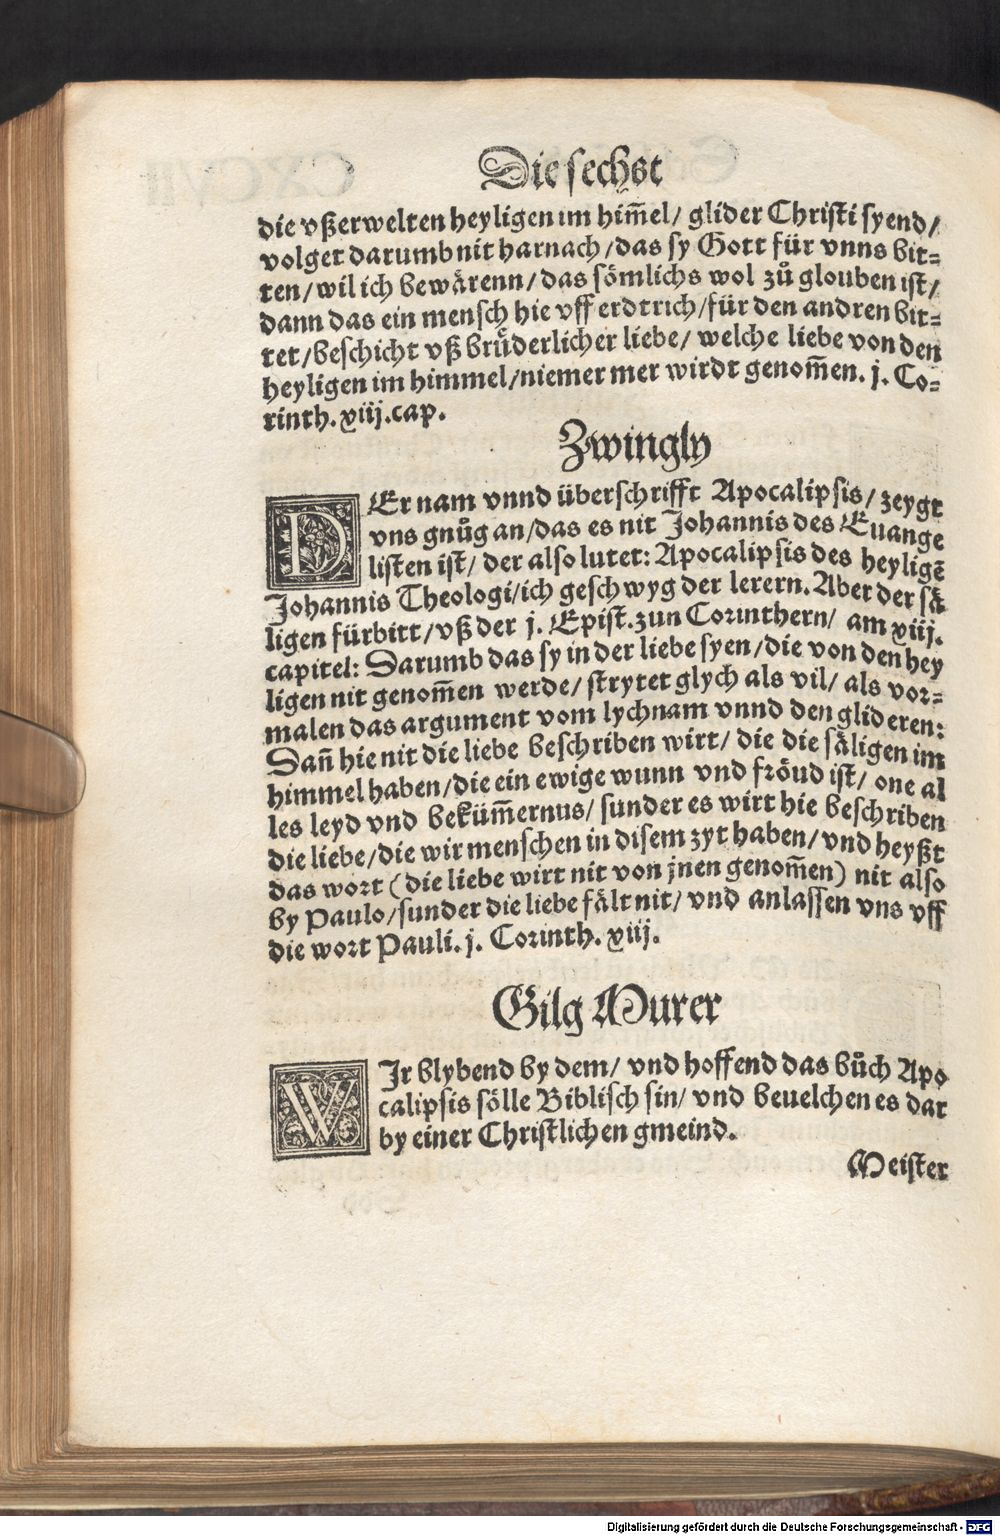 Die sechst
die vßerwelten heyligen im him̄el/ glider Christi syend/
volget darumb nit harnach/das sy Gott für vnns bit⸗
ten/wil ich bewärenn/das sömlichs wol zů glouben ist/
dann das ein mensch hie vff erdtrich/für den andren bit⸗
tet/beschicht vß brůderlicher liebe/ welche liebe von den
heyligen im himmel/niemer mer wirdt genom̄en. j. Co⸗
rinth. xiij. cap.
Zwingly
DEr nam vnnd überschrifft Apocalipsis/ zeygt
vns gnůg an/das es nit Johannis des Euange
listen ist/ der also lutet: Apocalipsis des heyligē
Johannis Theologi/ich geschwyg der lerern. Aber der sä
ligen fürbitt/vß der j. Epist. zun Corinthern/ am xiij.
capitel: Darumb das sy in der liebe syen/die von den hey
ligen nit genom̄en werde/ strytet glych als vil/ als vor⸗
malen das argument vom lychnam vnnd den glideren:
Dan̄ hie nit die liebe beschriben wirt/ die die säligen im
himmel haben/die ein ewige wunn vnd fröud ist/ one al
les leyd vnd beküm̄ernus/ sunder es wirt hie beschriben
die liebe/die wir menschen in disem zyt haben/vnd heyßt
das wort (die liebe wirt nit von jnen genom̄en) nit also
by Paulo/sunder die liebe fält nit/ vnd anlassen vns vff
die wort Pauli. j. Corinth. xiij.
Gilg Murer
WIr blybend by dem/ vnd hoffend das bůch Apo
calipsis sölle Biblisch sin/ vnd beuelchen es dar
by einer Christlichen gmeind.
Meister
Digitalisierung gefördert durch die Deutsche Forschungsgemeinschaft - DFG